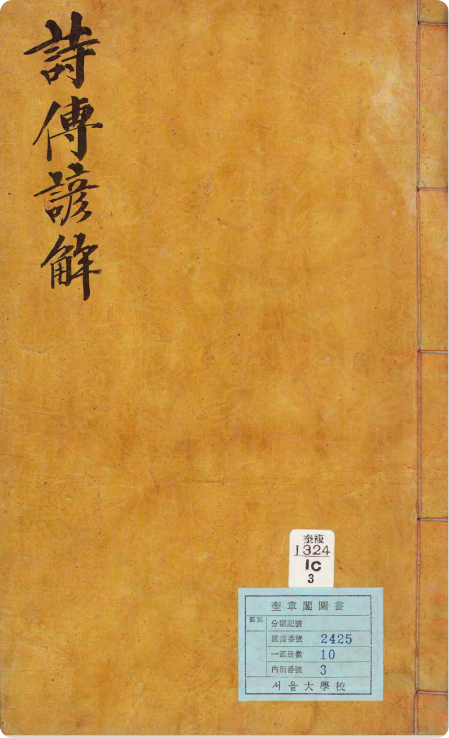 詩傳諺解
奎複
1324
1C
3
奎章閣圖書
部別
分類記號
圖書番號 2425
一部冊數 10
內別番號 3
서울大學校